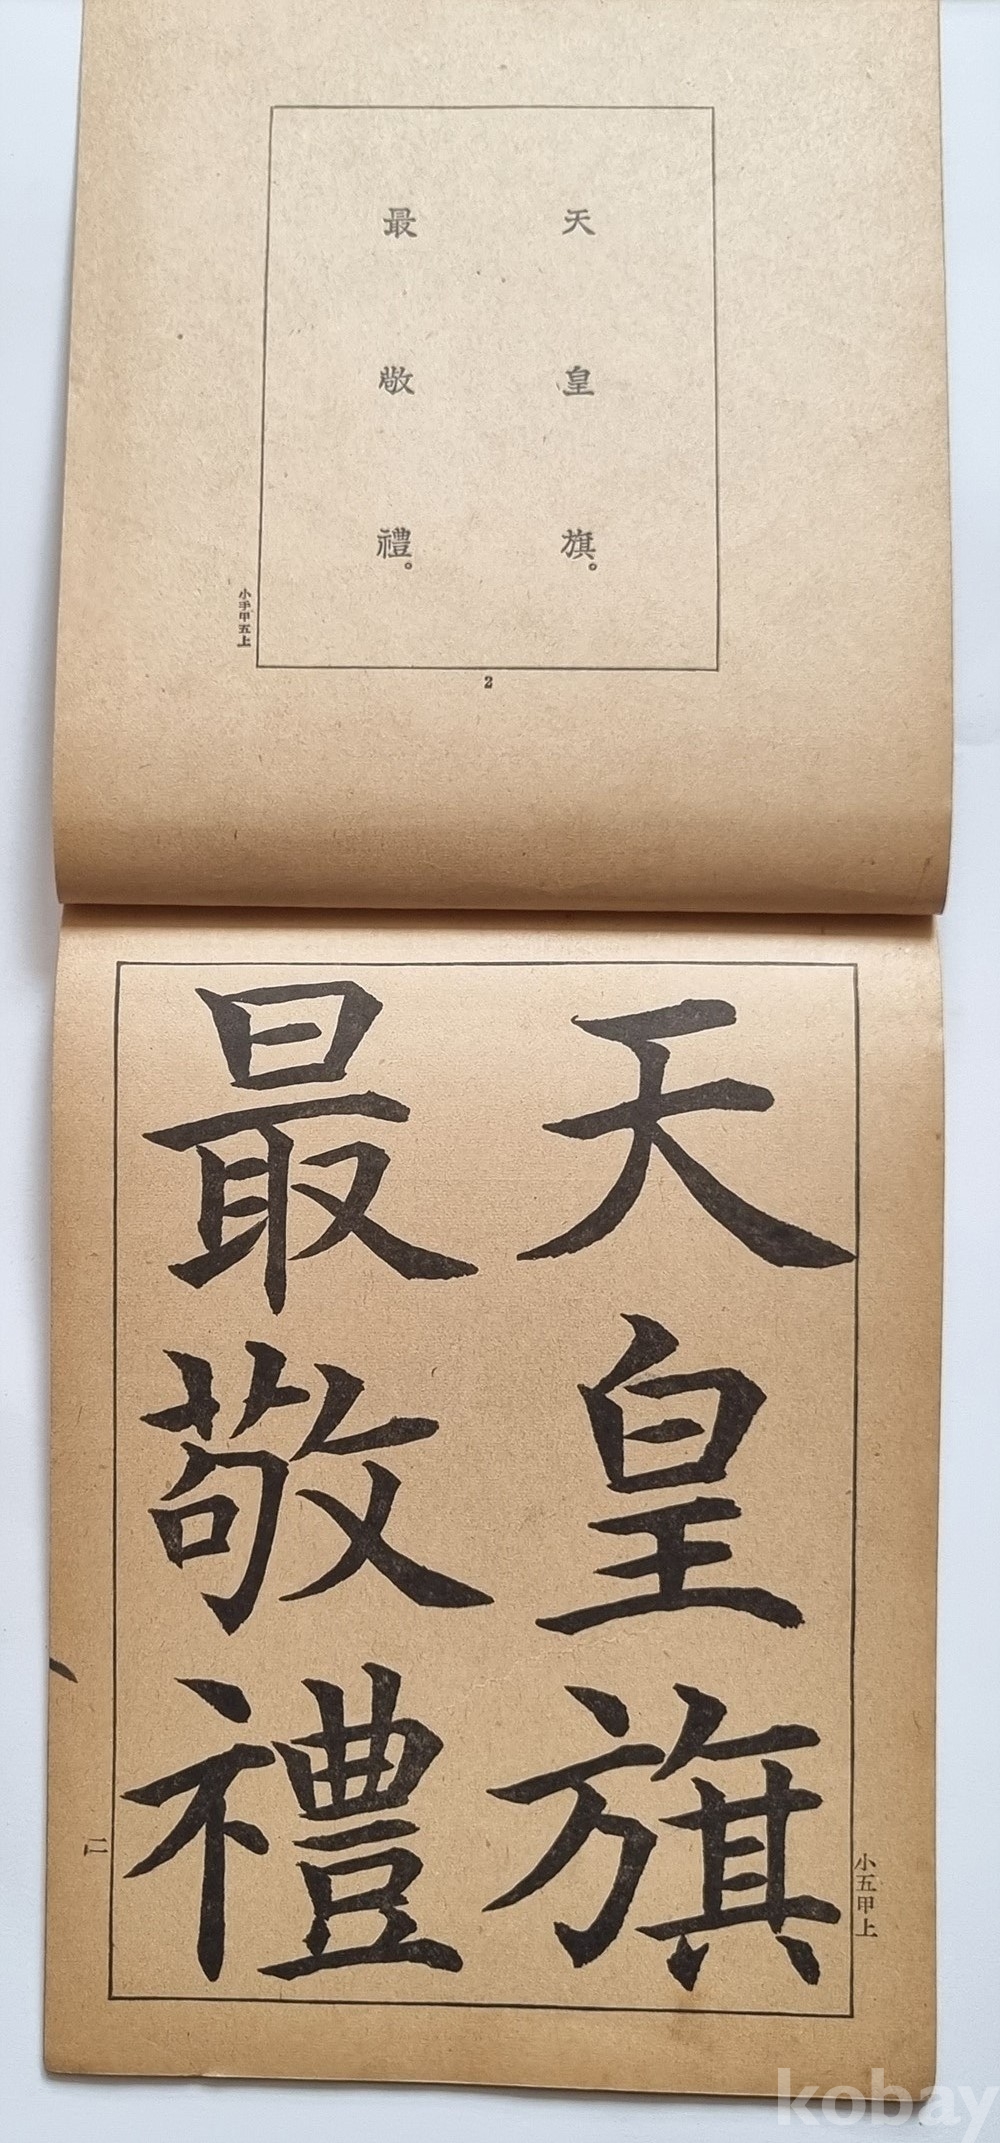 天皇旗。
最敬禮。
小手甲五上
2
天皇旗
最敬禮
小五甲上
二
kobay